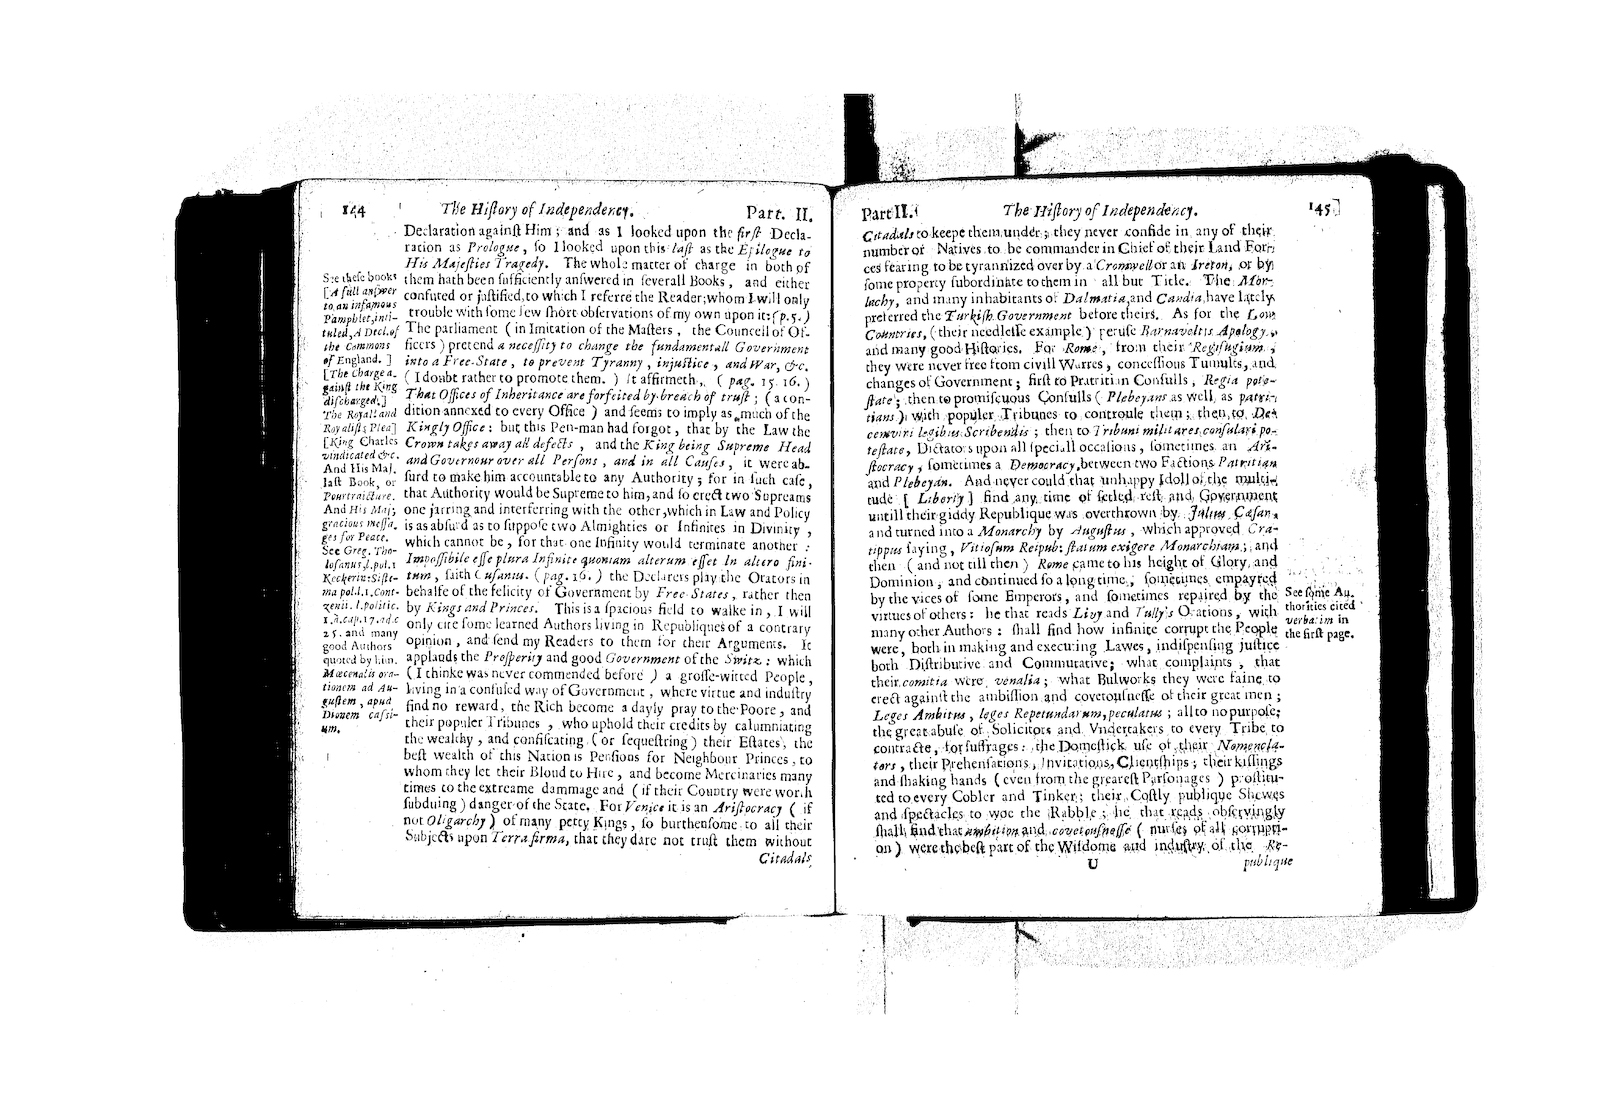 144 The Hiſtory of Independency. Part. II.
Declaration againſt Him ; and as I looked upon the firſt Decla-
ration as Prologue, ſo I looked upon this laſt as the Epilogue to
His Majeſties Tragedy. The whole matter of charge in both of
them hath been ſufficiently anſwered in ſeverall Books, and either
confuted or juſtified, to which I referre the Reader; whom I will only
trouble with ſome few ſhort obſervations of my own upon it: (p. 5.)
The parliament ( in Imitation of the Maſters , the Councell of Of-
ficers ) pretend a neceſſity to change the fundamentall Government
into a Free-State , to prevent Tyranny , injuſtice , and War, &c.
( I doubt rather to promote them. ) It affirmeth, ( pag. 15. 16. )
That Offices of Inheritance are forfeited by breach of truſt ; ( a con-
dition annexed to every Office ) and ſeems to imply as much of the
Kingly Office : but this Pen-man had forgot, that by the Law the
Crown takes away all defects , and the King being Supreme Head
and Governour over all Perſons , and in all Cauſes , it were ab-
ſurd to make him accountable to any Authority ; for in ſuch caſe ,
that Authority would be Supreme to him, and ſo erect two Supreams
one jarring and interferring with the other, which in Law and Policy
is as abſurd as to ſuppoſe two Almighties or Infinites in Divinity ,
which cannot be , for that one Infinity would terminate another :
Impoſſibile eſſe plura Infinite quoniam alterum eſſet In altero fini-
tum , ſaith Cuſanus. (pag. 16. ) the Declarers play the Orators in
behalfe of the felicity of Government by Free States , rather then
by Kings and Princes. This is a ſpacious field to walke in , I will
only cite ſome learned Authors living in Republiques of a contrary
opinion , and ſend my Readers to them for their Arguments. It
applauds the Proſperity and good Government of the Switz : which
( I thinke was never commended before ) a groſſe-witted People,
living in a confuſed way of Government , where virtue and induſtry
find no reward, the Rich become a dayly pray to the Poore , and
their populer Tribunes , who uphold their credits by calumniating
the wealthy , and confiſcating ( or ſequeſtring ) their Eſtates, the
beſt wealth of this Nation is Penſions for Neighbour Princes , to
whom they let their Bloud to Hire , and become Mercinaries many
times to the extreame dammage and ( if their Country were worth
ſubduing ) danger of the State. For Venice it is an Ariſtocracy ( if
not Oligarchy ) of many petty Kings, ſo burthenſome to all their
Subjects upon Terra firma, that they dare not truſt them without
Citadals
See theſe books
[ A full anſwer
to an infamous
Pamphlet, inti-
tuled, A Decl. of
the Commons
of England. ]
[ The Charge a-
gainſt the King
diſcharged; ]
The Royall and
Royaliſts Plea]
[King Charles
vindicated &c.
And His Maj.
laſt Book, or
Pourtraicture.
And His Maj;
gracious meſſa-
ges for Peace.
See Greg. Tho-
loſanus, l. pol. 1
Keckerm: Siſte-
ma pol. l. 1. Cont-
zenii. l. politic.
1. d. cap. 17. ad c
25. and many
good Authors
quoted by him.
Mæcenatis ora-
tionem ad Au-
guſtem , apud
Dionem caſsi-
um.
Part II. The Hiſtory of Independency. 145
Citadals to keepe them under ; they never confide in any of their
number or Natives to be commander in Chief of their Land For-
ces fearing to be tyrannized over by a Cromwell or an Ireton, or by
ſome property ſubordinate to them in all but Title. The Mor-
lachy, and many inhabitants of Dalmatia, and Candia, have lately
preferred the Turkiſh Government before theirs. As for the Low
Countries, ( their needleſſe example ) peruſe Barnavelts Apology,
and many good Hiſtories. For Rome , from their Regifugium ,
they were never free from civill Warres, conceſſious Tumults, and
changes of Government ; firſt to Pratritian Conſulls , Regia pote-
ſtate ; then to promiſcuous Conſulls ( Plebeyans as well, as patri-
tians ) with populer Tribunes to controule them ; then, to De-
cemviri legibus Scribendis ; then to Tribuni militares conſulari po-
teſtate, Dictators upon all ſpeciall occaſions , ſometimes an Ari-
ſtocracy , ſometimes a Democracy, between two Factions Patritian
and Plebeyan. And never could that unhappy Idoll of the multi-
tude [ Liberty ] find any time of ſetled reſt and Government
untill their giddy Republique was overthrown by Julius Cæſar,
and turned into a Monarchy by Auguſtus , which approved Cra-
tippus ſaying , Vitioſum Reipub: ſtatum exigere Monarchiam ; and
then ( and not till then ) Rome came to his height of Glory, and
Dominion , and continued ſo a long time , ſometimes empayred
by the vices of ſome Emperors , and ſometimes repaired by the
virtues of others : he that reads Livy and Tully's Orations , with
many other Authors : ſhall find how infinite corrupt the People
were , both in making and executing Lawes, indiſpenſing juſtice
both Diſtributive and Commutative; what complaints , that
their comitia were venalia ; what Bulworks they were faine to
erect againſt the ambiſſion and covetouſneſſe of their great men ;
Leges Ambitus , leges Repetundarum, peculatus ; all to no purpoſe;
the great abuſe of Solicitors and Vndertakers to every Tribe to
contracte , for ſuffrages : the Domeſtick uſe of their Nomencla-
tors , their Prehenſations , Invitations, Clientſhips ; their kiſſings
and ſhaking hands ( even from the greateſt Parſonages ) proſtitu-
ted to every Cobler and Tinker ; their Coſtly publique Shewes
and ſpectacles to woe the Rabble ; he that reads obſervingly
ſhall find that Ambition and covetouſneſſe ( nurſes of all corrupti-
on ) were the beſt part of the Wiſdome and induſtry of the Re-
U publique
See ſome Au-
thorities cited
verbatim in
the firſt page.